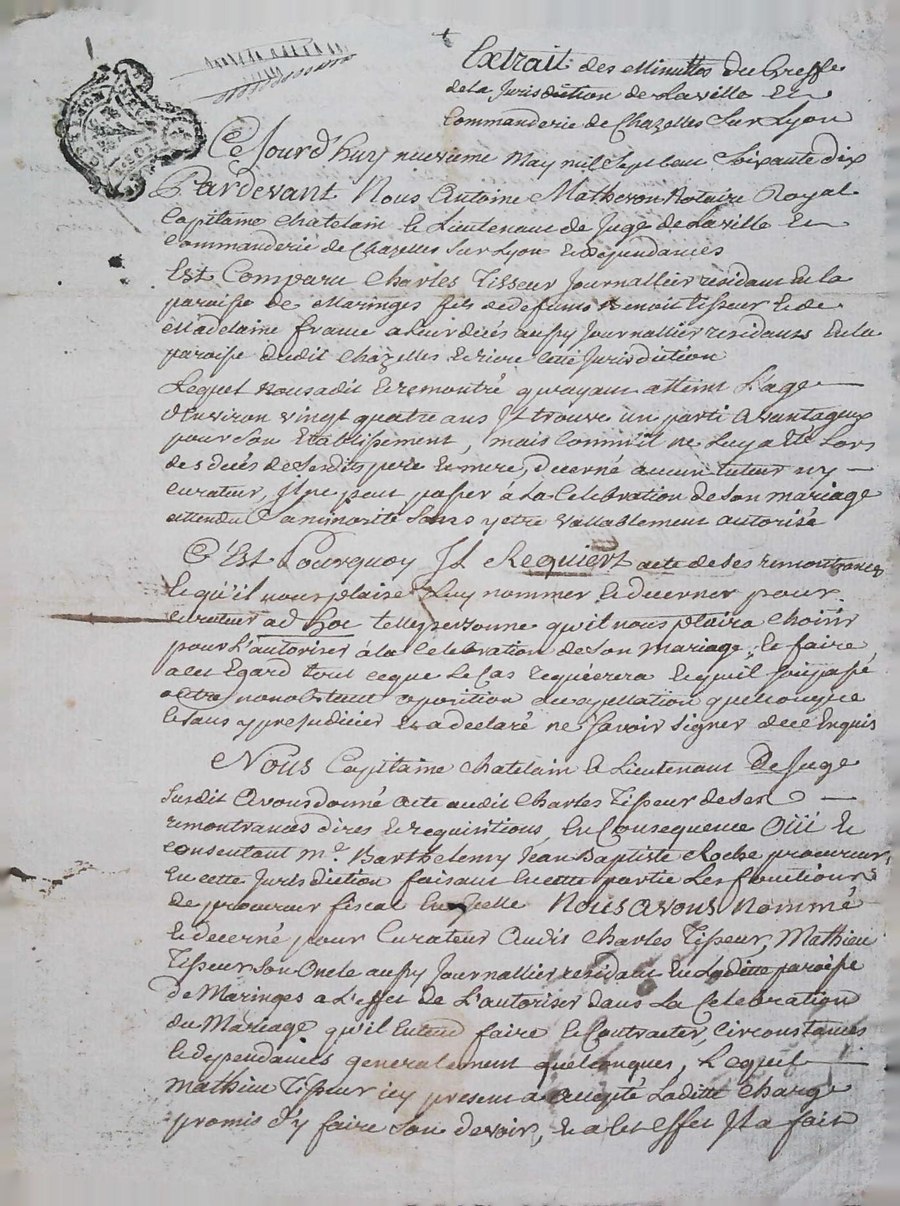 Extrait des Minuttes du Greffe
de la Jurisdiction de la ville Et
Commanderie de Chazelles Sur Lyon
Ce Jourd'huy neuvieme May mil Sept Cent Soixante dix
Pardevant Nous Antoine Matheron Notaire Royal
Capitaine Chatelain Et Lieutenant de Juge de la ville Et
Commanderie de Chazelles Sur Lyon Et dépendances
Est Comparu Charles Tisseur Journallier residant En la
paroisse de Maringes fils de defunts Benoit Tisseur Et de
Madelaine france a Leur décés aussy Journallier residants En la
paroisse dudit Chazelles Et riere Cette Jurisdiction
Lequel Nous a dit Et remontré qu'ayant atteint L'age
d'Environ vingt quatre ans Il trouve un parti Avantageux
pour Son Etablissement, mais Comm'il ne Luy a Eté Lors
des décés de Sesdits pere Et mere, décerné aucun tuteur ny
Curateur, Il ne peut passer á La Celebration de Son mariage
attendu Sa minorité Sans y etre vallablement autorisé
C'Est Pourquoy Il Requiert acte de Ses remontrances
Et qu'il nous plaise Luy nommer Et décerner pour
Curateur ad Hoc telle personne qu'il nous plaira Choisir
pour L'autoriser á la Celebration de Son mariage, Et faire
a cet Egard tout ce que Le Cas requérera Et qu'il Soit passé
outre nonobstant opposition ou appellation quelconque
Et Sans y prejudicier Et a declaré ne Savoir Signer de ce Enquis
Nous Capitaine Chatelain Et Lieutenant De Juge
Susdit Avons donné acte audit Charles Tisseur de Ses
remontrances dires Et requisitions, En Consequence Oüi Et
Consentant Me. Barthelemy Jean Baptiste Roche procureur
En cette Jurisdiction faisant En cette partie Les fonctions
De procureur fiscal En Icelle Nous avons Nommé
Et decerné pour Curateur Audit Charles Tisseur, Mathieu
Tisseur Son Oncle aussy Journallier residant En Laditte paroisse
de Maringes a L'effet de L'autoriser dans La Celebration
du Mariage qu'il Entend faire Et Contracter, Circonstances
Et dépendances generalement quelconques, Lequel
Mathieu Tisseur icy present a accepté Laditte Charge
promis d'y faire Son devoir, Et a Cet Effet Il a fait